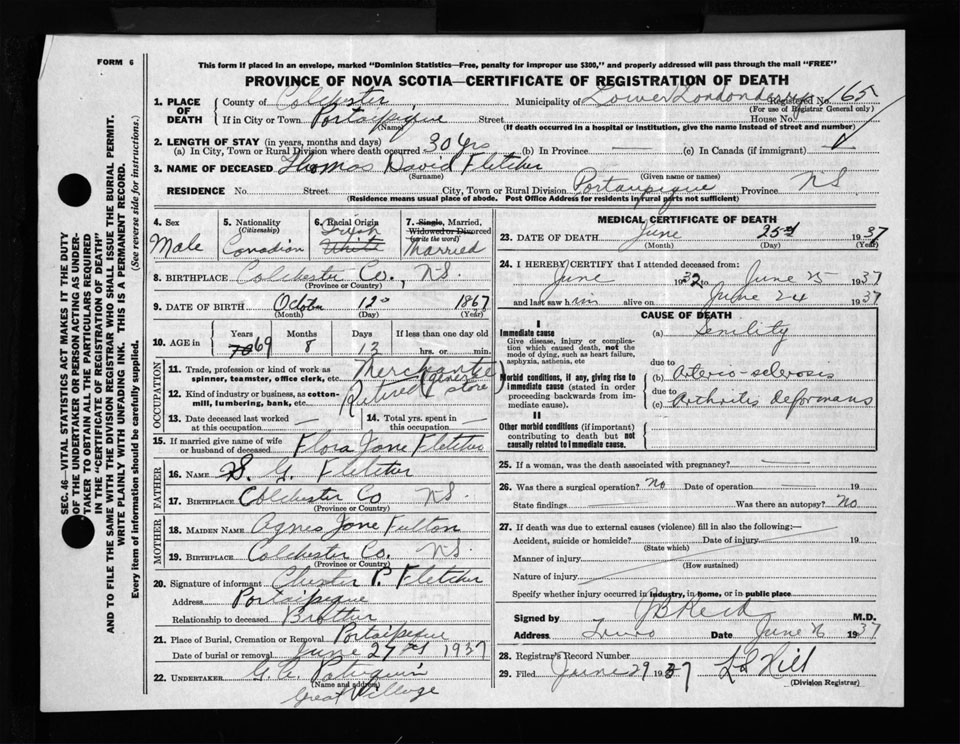 FORM 6
This form if placed in an envelope, marked "Dominion Statistics—Free, penalty for improper use $300," and properly addressed will pass through the mail "FREE"
PROVINCE OF NOVA SCOTIA—CERTIFICATE OF REGISTRATION OF DEATH
SEC. 46—VITAL STATISTICS ACT MAKES IT THE DUTY
OF THE UNDERTAKER OR PERSON ACTING AS UNDER-
TAKER TO OBTAIN ALL THE PARTICULARS REQUIRED
IN THE "CERTIFICATE OF REGISTRATION OF DEATH"
AND TO FILE THE SAME WITH THE DIVISION REGISTRAR WHO SHALL ISSUE THE BURIAL PERMIT.
WRITE PLAINLY WITH UNFADING INK. THIS IS A PERMANENT RECORD.
Every item of information should be carefully supplied. (See reverse side for instructions.)
1. PLACE OF DEATH County of Colchester, Municipality of Lower Londonderry Registered No. 165
(For use of Registrar General only)
If in City or Town Portaupique Street House No.
(Name) (If death occurred in a hospital or institution, give the name instead of street and number)
2. LENGTH OF STAY (in years, months and days)
(a) In City, Town or Rural Division where death occurred 30 yrs (b) In Province — (c) In Canada (if immigrant)
3. NAME OF DECEASED Thomas David Fletcher
(Surname) (Given name or names)
RESIDENCE No. Street City, Town or Rural Division Portaupique Province N.S.
(Residence means usual place of abode. Post Office Address for residents in rural parts not sufficient)
4. Sex 5. Nationality 6. Racial Origin 7. Single, Married,
(Citizenship) Irish Widowed or Divorced
(write the word)
Male Canadian White Married
8. BIRTHPLACE Colchester Co., N.S.
(Province or Country)
9. DATE OF BIRTH October 12 1867
(Month) (Day) (Year)
Years Months Days If less than one day old
10. AGE in 70 69 8 13 hrs. or min.
OCCUPATION
11. Trade, profession or kind of work as Merchant
spinner, teamster, office clerk, etc. (General
12. Kind of industry or business, as cotton- Retired store)
mill, lumbering, bank, etc.
13. Date deceased last worked 14. Total yrs. spent in
at this occupation — this occupation —
15. If married give name of wife
or husband of deceased Flora Jane Fletcher
FATHER
16. NAME G. Fletcher
17. BIRTHPLACE Colchester Co N.S.
(Province or Country)
MOTHER
18. MAIDEN NAME Agnes Jane Fulton
19. BIRTHPLACE Colchester Co. N.S.
(Province or Country)
20. Signature of informant Chester P. Fletcher
Address Portaupique
Relationship to deceased Brother
21. Place of Burial, Cremation or Removal Portaupique
Date of burial or removal June 27 1937
22. UNDERTAKER G. A. Patriquin
(Name and address)
Great Village
MEDICAL CERTIFICATE OF DEATH
23. DATE OF DEATH June 25 1937
(Month) (Day) (Year)
24. I HEREBY CERTIFY that I attended deceased from:
June 1932 to June 25 1937
and last saw him alive on June 24 1937
CAUSE OF DEATH
I
Immediate cause (a) Senility
Give disease, injury or complica-
tion which caused death, not the
mode of dying, such as heart failure,
asphyxia, asthenia, etc due to
Morbid conditions, if any, giving rise to (b) Arterio-sclerosis
immediate cause (stated in order due to
proceeding backwards from im- (c) Arthritis deformans
mediate cause).
II
Other morbid conditions (if important)
contributing to death but not
causally related to immediate cause.
25. If a woman, was the death associated with pregnancy? —
26. Was there a surgical operation? No Date of operation — 19
State findings — Was there an autopsy? No
27. If death was due to external causes (violence) fill in also the following:—
Accident, suicide or homicide? Date of injury 19
(State which)
Manner of injury
(How sustained)
Nature of injury
Specify whether injury occurred in industry, in home, or in public place
Signed by J B Reid M.D.
Address Truro Date June 26 1937
28. Registrar's Record Number
29. Filed June 29 1937 Hill
(Division Registrar)